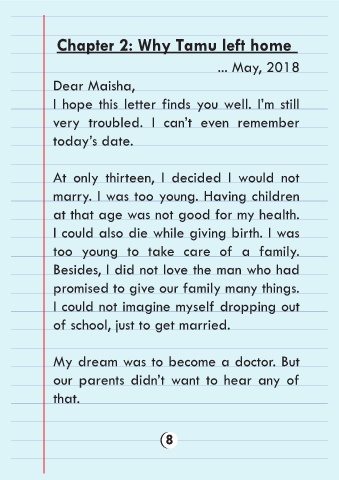 Chapter 2: Why Tamu left home
... May, 2018
Dear Maisha,
I hope this letter finds you well. I'm still
very troubled. I can't even remember
today's date.
At only thirteen, I decided I would not
marry. I was too young. Having children
at that age was not good for my health.
I could also die while giving birth. I was
too young to take care of a family.
Besides, I did not love the man who had
promised to give our family many things.
I could not imagine myself dropping out
of school, just to get married.
My dream was to become a doctor. But
our parents didn't want to hear any of
that.
8